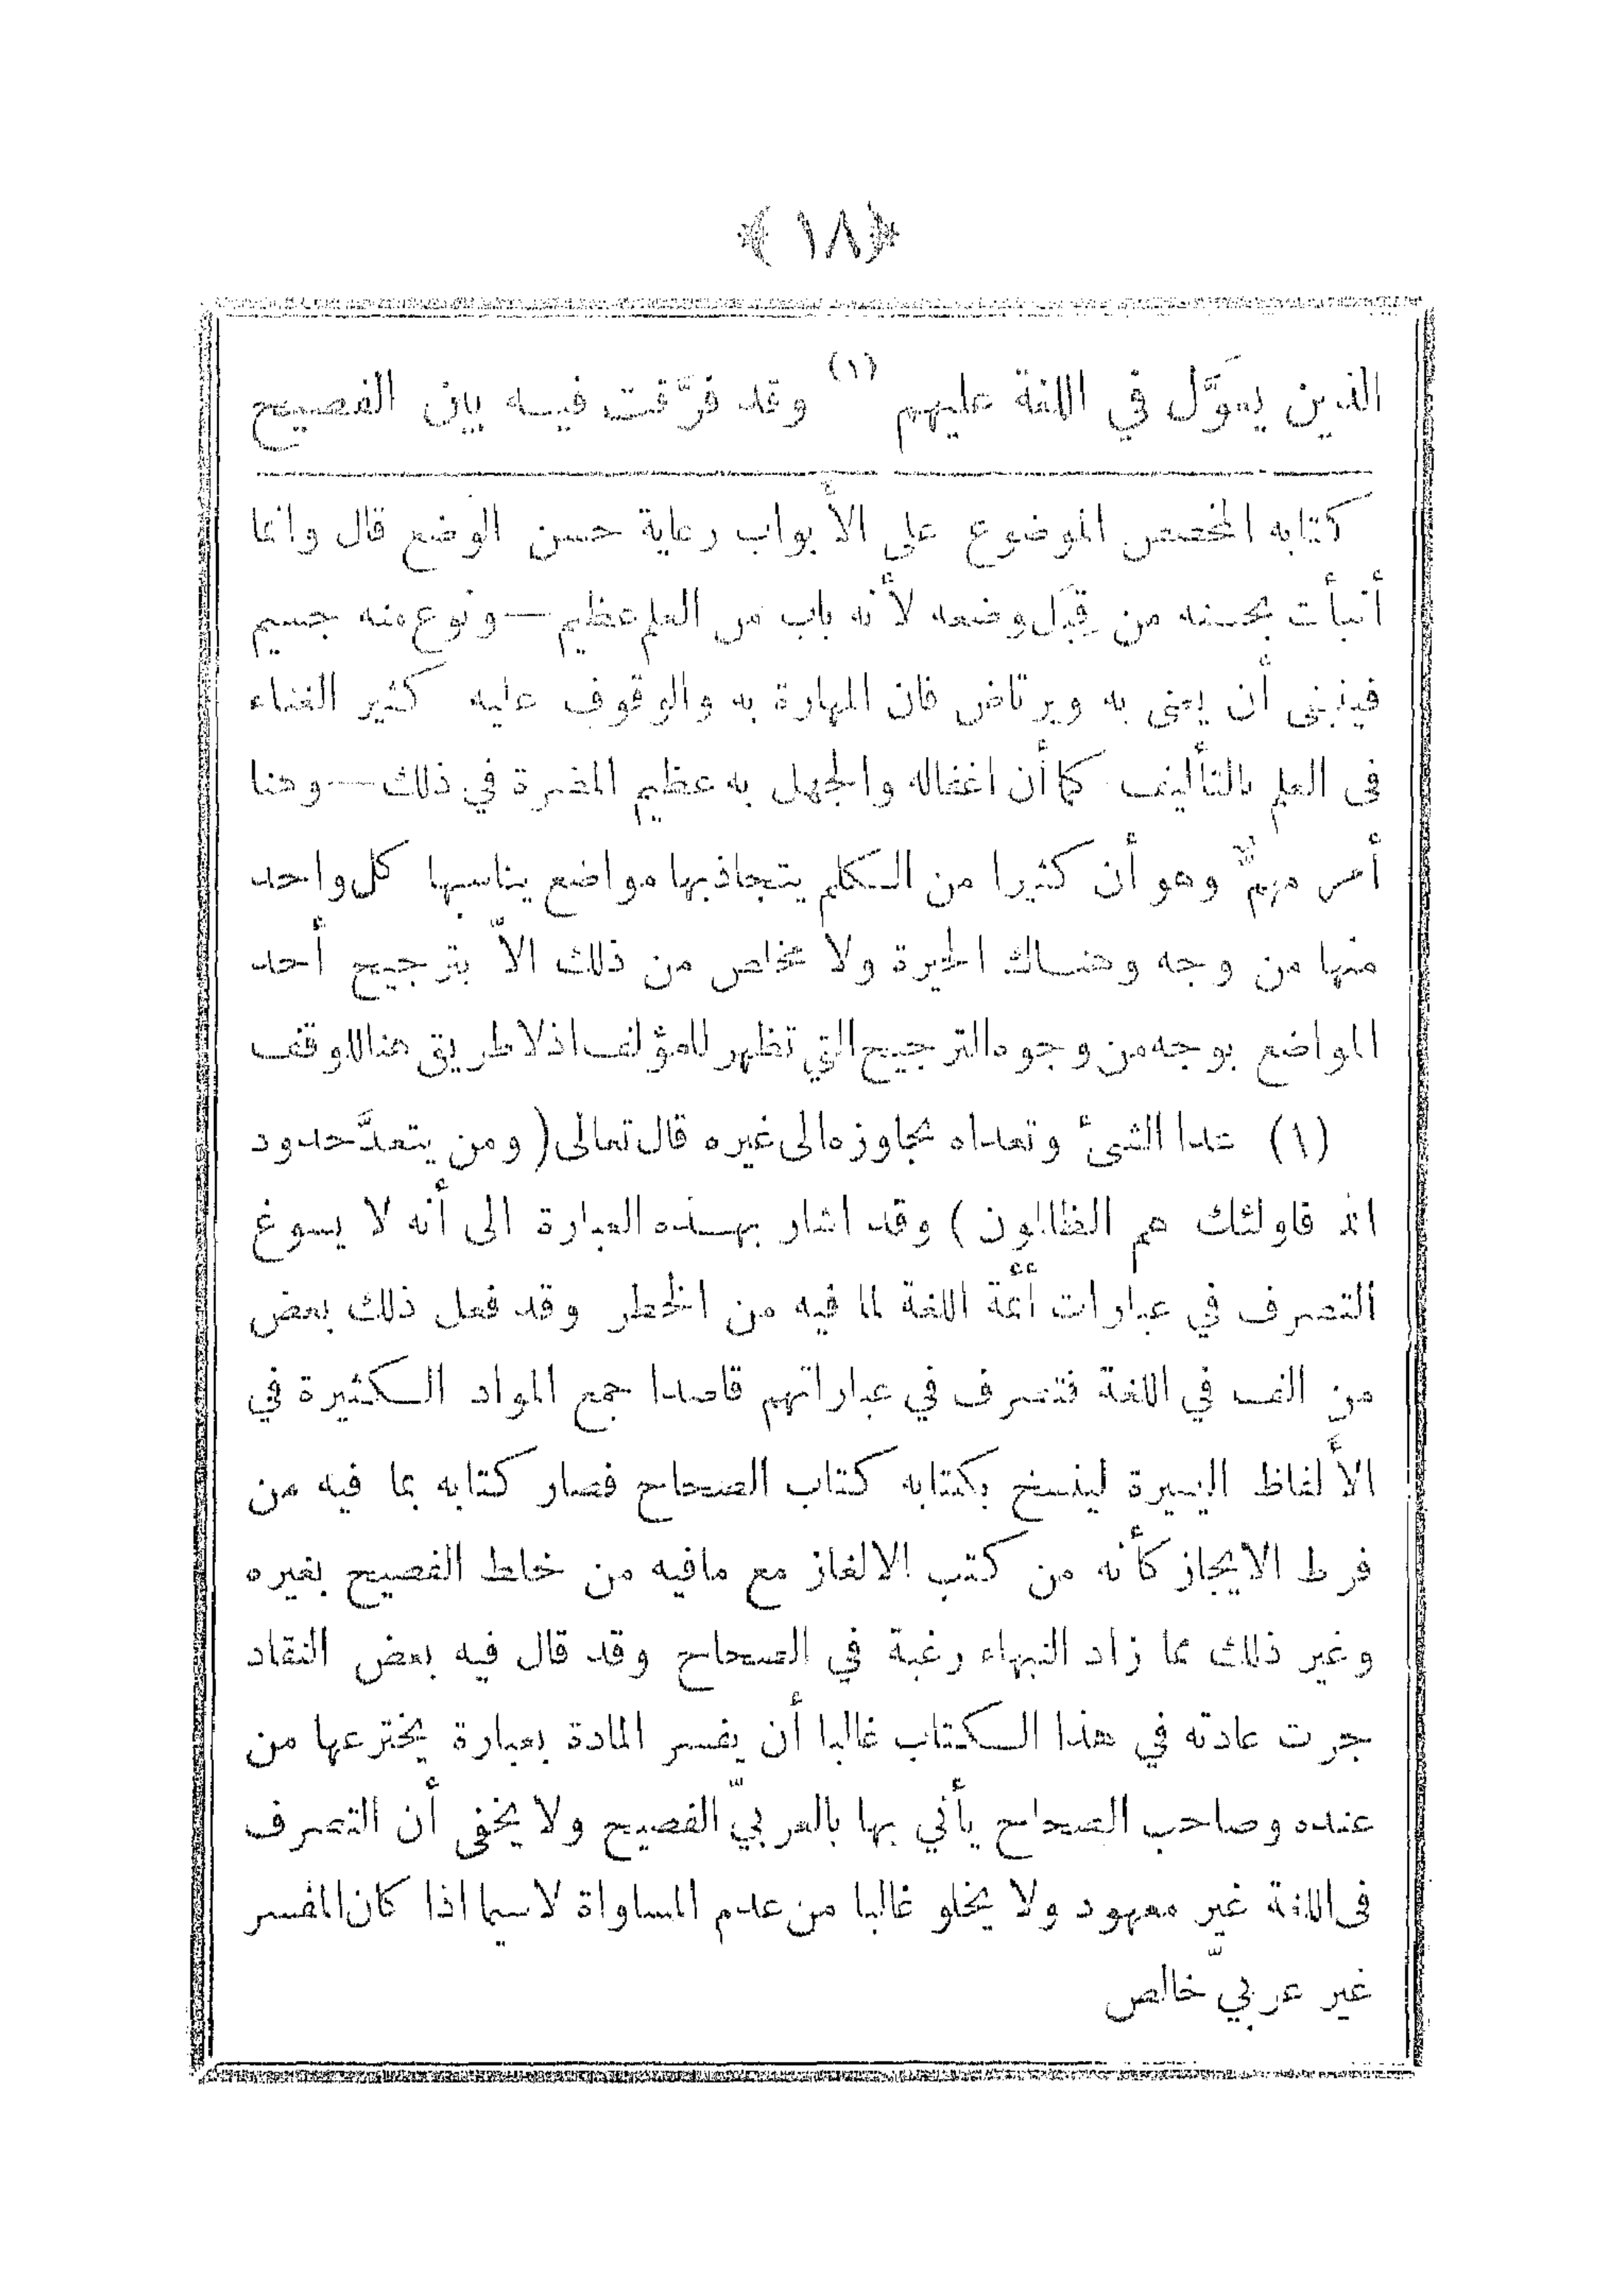 ﴿ ١٨ ﴾
الذين يعوَّل في اللغة عليهم (١) وقد فرَّقت فيه بين الفصيح
كتابه المخصص الموضوع على الأبواب رعاية حسن الوضع قال وانما
أنبأت بحسنه من قِبَل وضعه لأنه باب من العلم عظيم — ونوع منه جسيم
فينبغى أن يعنى به ويرتاض فان المهارة به والوقوف عليه كثير الغناء
فى العلم بالتأليف كما أن اغفاله والجهل به عظيم المضرة في ذلك — وهنا
أمر مهمٌّ وهو أن كثيرا من الكلم يتجاذبها مواضع يناسبها كل واحد
منها من وجه وهناك الحيرة ولا مخلص من ذلك الاّ بترجيح أحد
المواضع بوجه من وجوه الترجيح التي تظهر للمؤلف اذ لا طريق هنا للوقف
(١) عدا الشئ وتعداه تجاوزه الى غيره قال تعالى ( ومن يتعدَّ حدود
الله فاولئك هم الظالمون ) وقد اشار بهذه العبارة الى أنه لا يسوغ
التصرف في عبارات أئمة اللغة لما فيه من الخطر وقد فعل ذلك بعض
من الف في اللغة فتصرف في عباراتهم قاصدا جمع المواد الكثيرة في
الألفاظ اليسيرة لينسخ بكتابه كتاب الصحاح فصار كتابه بما فيه من
فرط الايجاز كأنه من كتب الالغاز مع مافيه من خلط الفصيح بغيره
وغير ذلك مما زاد النبهاء رغبة في الصحاح وقد قال فيه بعض النقاد
جرت عادته في هذا الكتاب غالبا أن يفسر المادة بعبارة يخترعها من
عنده وصاحب الصحاح يأتي بها بالعربيّ الفصيح ولا يخفى أن التصرف
فى اللغة غير معهود ولا يخلو غالبا من عدم المساواة لاسيما اذا كان المفسر
غير عربيّ خالص